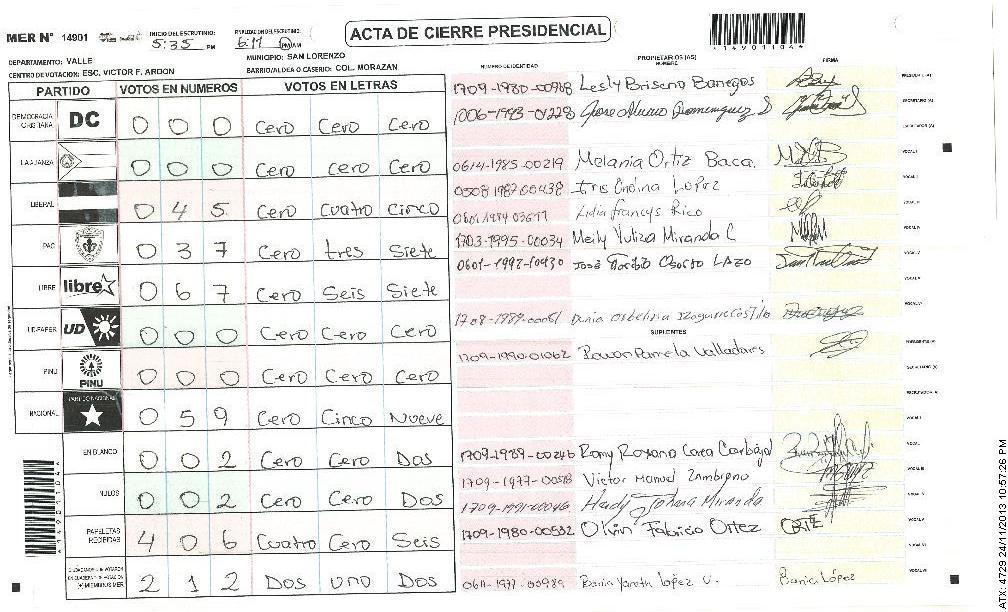 MER N° 14901
INICIO DEL ESCRUTINIO: 5:35 PM
FINALIZACION DEL ESCRUTINIO: 6:11 PM AM
ACTA DE CIERRE PRESIDENCIAL
14901104
DEPARTAMENTO: VALLE
MUNICIPIO: SAN LORENZO
CENTRO DE VOTACION: ESC. VICTOR F. ARDON
BARRIO/ALDEA O CASERIO: COL. MORAZAN
PARTIDO VOTOS EN NUMEROS VOTOS EN LETRAS
DEMOCRACIA CRISTIANA DC 0 0 0 Cero Cero Cero
LA ALIANZA 0 0 0 Cero Cero Cero
LIBERAL 0 4 5 Cero Cuatro Cinco
PAC 0 3 7 Cero tres Siete
LIBRE libre 0 6 7 Cero Seis Siete
UD-FAPER UD 0 0 0 Cero Cero Cero
PINU PINU 0 0 0 Cero Cero Cero
NACIONAL PARTIDO NACIONAL 0 5 9 Cero Cinco Nueve
EN BLANCO 0 0 2 Cero Cero Dos
NULOS 0 0 2 Cero Cero Dos
PAPELETAS RECIBIDAS 4 0 6 Cuatro Cero Seis
2 1 2 Dos uno Dos
NUMERO DE IDENTIDAD PROPIETARIOS (AS) NOMBRE FIRMA
Lesly Briseno Banegas PRESIDENTE (A)
Jose Alvaro Dominguez S SECRETARIO (A)
ESCRUTADOR (A)
0614-1985-00219 Melania Ortiz Baca VOCAL I
0508 1987-00438 Iris Ondina Lopez
Lidia francys Rico
1703-1995-00034 Meily Yuliza Miranda C
0601-1992-00430 Jose Osorto LAZO
1708-1989-00051 Dunia
SUPLENTES
1709-1990-01062 Pamela Valladares PRESIDENTE (A)
SECRETARIO (A)
ESCRUTADOR (A)
1709-1989-00246 Romy Roxana
1709-1977-00518 Victor Manuel Zambrano
1709-1991-00046 Heidy Johana Miranda
1709-1980-00532 Olvin Fabricio Ortez
0611-1977-00989 Bania Yaneth Lopez V. Bania López
ATX: 4729 24/11/2013 10:57:26 PM